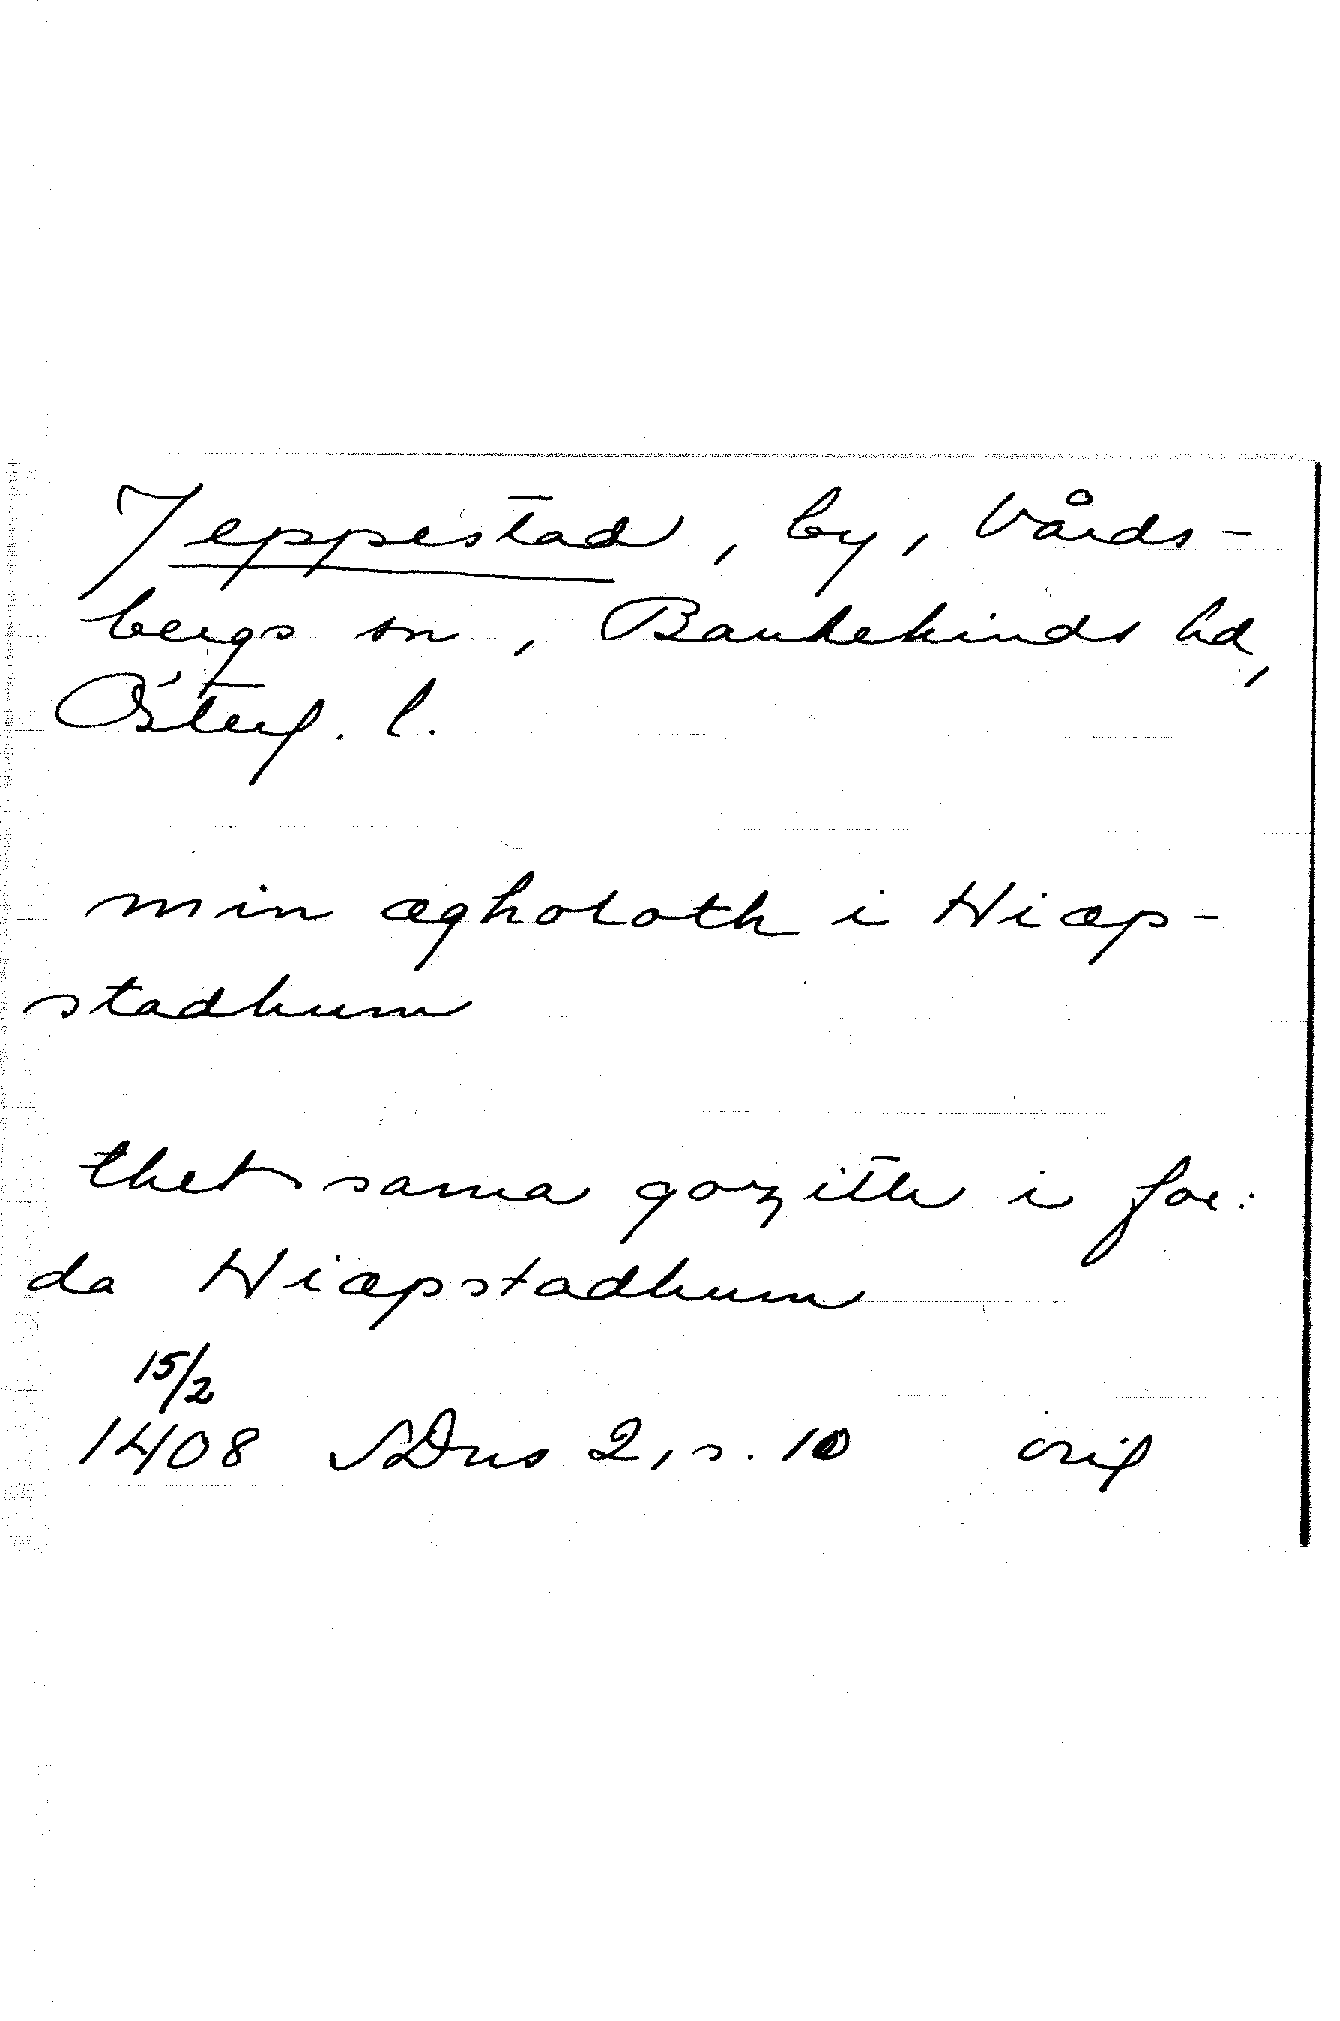 Jeppestad, by, Vårds-
bergs sn, Bankekinds hd,
Österg. l.
min ægholoth i Hiæp-
stadhum
thet sama gozith i for:
da Hiæpstadhum
15/2
1408 SDns 2, s. 10 orig